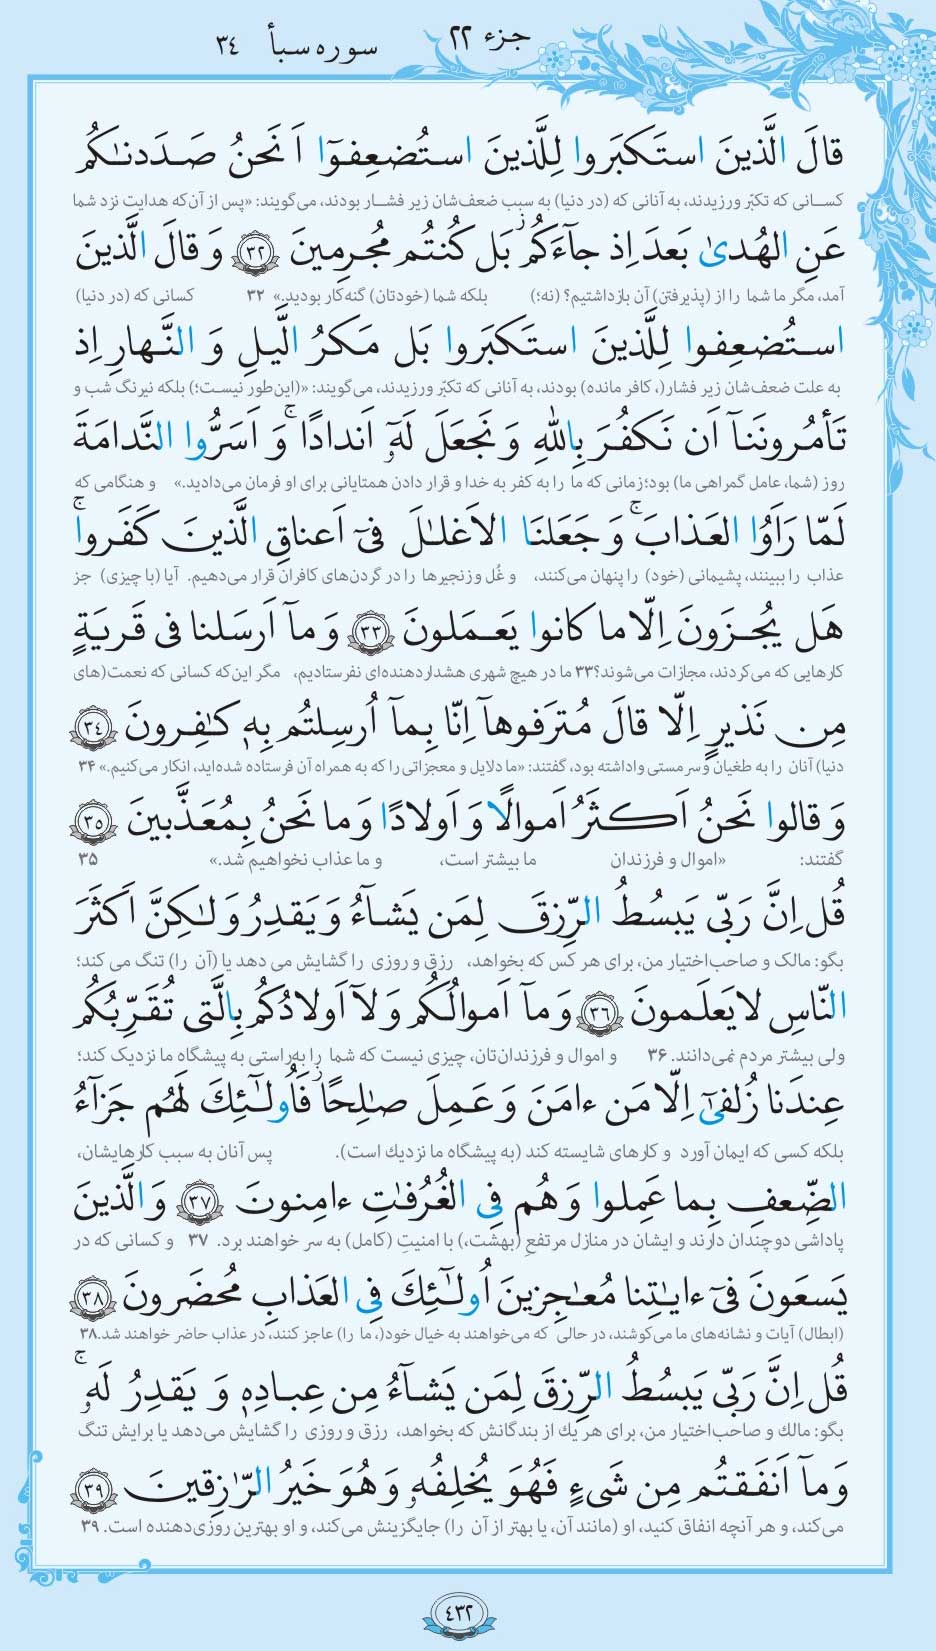 جزء ۲۲
سوره سبأ ۳٤
قالَ الَّذینَ استَکبَروا لِلَّذینَ استُضعِفوٓا اَنَحنُ صَدَدنـٰکُم
کسانی که تکبّر ورزیدند، به آنانی که (در دنیا) به سبب ضعف‌شان زیر فشار بودند، می‌گویند: «پس از آن‌که هدایت نزد شما
عَنِ الهُدیٰ بَعدَ اِذ جآءَکُم ۖز بَل کُنتُم مُجرِمینَ ﴿۳۲﴾ وَ قالَ الَّذینَ
آمد، مگر ما شما را از (پذیرفتن) آن بازداشتیم؟ (نه؛) بلکه شما (خودتان) گنه‌کار بودید.» ۳۲ کسانی که (در دنیا)
استُضعِفوا لِلَّذینَ استَکبَروا بَل مَکرُ الَّیلِ وَ النَّهارِ اِذ
به علت ضعف‌شان زیر فشار(، کافر مانده) بودند، به آنانی که تکبّر ورزیدند، می‌گویند: «(این‌طور نیست؛) بلکه نیرنگ شب و
تَأمُرونَنآ اَن نَکفُرَ بِاللّٰهِ وَ نَجعَلَ لَهٗٓ اَندادًا ۚ وَ اَسَرُّوا النَّدامَةَ
روز (شما، عامل گمراهی ما) بود؛ زمانی که ما را به کفر به خدا و قرار دادن همتایانی برای او فرمان می‌دادید.» و هنگامی که
لَمّا رَاَوُا العَذابَ ۚ وَ جَعَلنَا الاَغلـٰلَ فیٓ اَعناقِ الَّذینَ کَفَروا ۚ
عذاب را ببینند، پشیمانی (خود) را پنهان می‌کنند، و غُل و زنجیرها را در گردن‌های کافران قرار می‌دهیم. آیا (با چیزی) جز
هَل یُجزَونَ اِلّا ما کانوا یَعمَلونَ ﴿۳۳﴾ وَ مآ اَرسَلنا فی قَریَةٍ
کارهایی که می‌کردند، مجازات می‌شوند؟ ۳۳ ما در هیچ شهری هشداردهنده‌ای نفرستادیم، مگر این‌که کسانی که نعمت(های
مِن نَذیرٍ اِلّا قالَ مُترَفوهآ اِنّا بِمآ اُرسِلتُم بِهٖ کـٰفِرونَ ﴿۳٤﴾
دنیا) آنان را به طغیان و سرمستی واداشته بود، گفتند: «ما دلایل و معجزاتی را که به همراه آن فرستاده شده‌اید، انکار می‌کنیم.» ۳۴
وَ قالوا نَحنُ اَکثَرُ اَموالًا وَ اَولادًا وَ ما نَحنُ بِمُعَذَّبینَ ﴿۳٥﴾
گفتند: «اموال و فرزندان ما بیشتر است، و ما عذاب نخواهیم شد.» ۳۵
قُل اِنَّ رَبّی یَبسُطُ الرِّزقَ لِمَن یَشآءُ وَ یَقدِرُ وَ لـٰکِنَّ اَکثَرَ
بگو: مالک و صاحب‌اختیار من، برای هر کس که بخواهد، رزق و روزی را گشایش می دهد یا (آن را) تنگ می کند؛
النّاسِ لا یَعلَمونَ ﴿۳٦﴾ وَ مآ اَموالُکُم وَ لآ اَولادُکُم بِالَّتی تُقَرِّبُکُم
ولی بیشتر مردم نمی‌دانند. ۳۶ و اموال و فرزندان‌تان، چیزی نیست که شما را به‌راستی به پیشگاه ما نزدیک کند؛
عِندَنا زُلفیٰٓ اِلّا مَن ءامَنَ وَ عَمِلَ صـٰلِحًا ۖز فَاُولـٰٓئِكَ لَهُم جَزآءُ
بلکه کسی که ایمان آورد و کارهای شایسته کند (به پیشگاه ما نزدیك است). پس آنان به سبب کارهایشان،
الضِّعفِ بِما عَمِلوا وَ هُم فِی الغُرُفـٰتِ ءامِنونَ ﴿۳۷﴾ وَ الَّذینَ
پاداشی دوچندان دارند و ایشان در منازل مرتفعِ (بهشت،) با امنیتِ (کامل) به سر خواهند برد. ۳۷ و کسانی که در
یَسعَونَ فیٓ ءایـٰتِنا مُعـٰجِزینَ اُولـٰٓئِكَ فِی العَذابِ مُحضَرونَ ﴿۳۸﴾
(ابطال) آیات و نشانه‌های ما می‌کوشند، در حالی که می‌خواهند به خیال خود(، ما را) عاجز کنند، در عذاب حاضر خواهند شد. ۳۸
قُل اِنَّ رَبّی یَبسُطُ الرِّزقَ لِمَن یَشآءُ مِن عِبادِهٖ وَ یَقدِرُ لَهٗ ۚ
بگو: مالك و صاحب‌اختیار من، برای هر یك از بندگانش که بخواهد، رزق و روزی را گشایش می‌دهد یا برایش تنگ
وَ مآ اَنفَقتُم مِن شَیءٍ فَهُوَ یُخلِفُهٗ وَ هُوَ خَیرُ الرّٰزِقینَ ﴿۳۹﴾
می‌کند، و هر آنچه انفاق کنید، او (مانند آن، یا بهتر از آن را) جایگزینش می‌کند، و او بهترین روزی‌دهنده است. ۳۹
٤۳۲